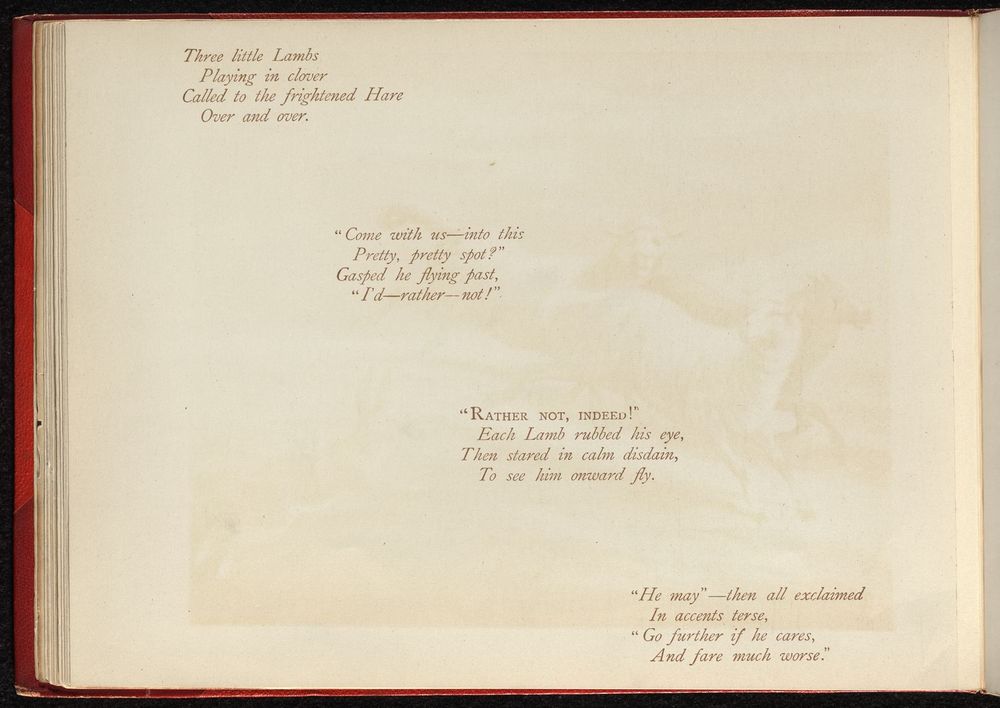 Three little Lambs
Playing in clover
Called to the frightened Hare
Over and over.
“Come with us—into this
Pretty, pretty spot?”
Gasped he flying past,
“I'd—rather—not!”
“RATHER NOT, INDEED!”
Each Lamb rubbed his eye,
Then stared in calm disdain,
To see him onward fly.
“He may”—then all exclaimed
In accents terse,
“Go further if he cares,
And fare much worse.”